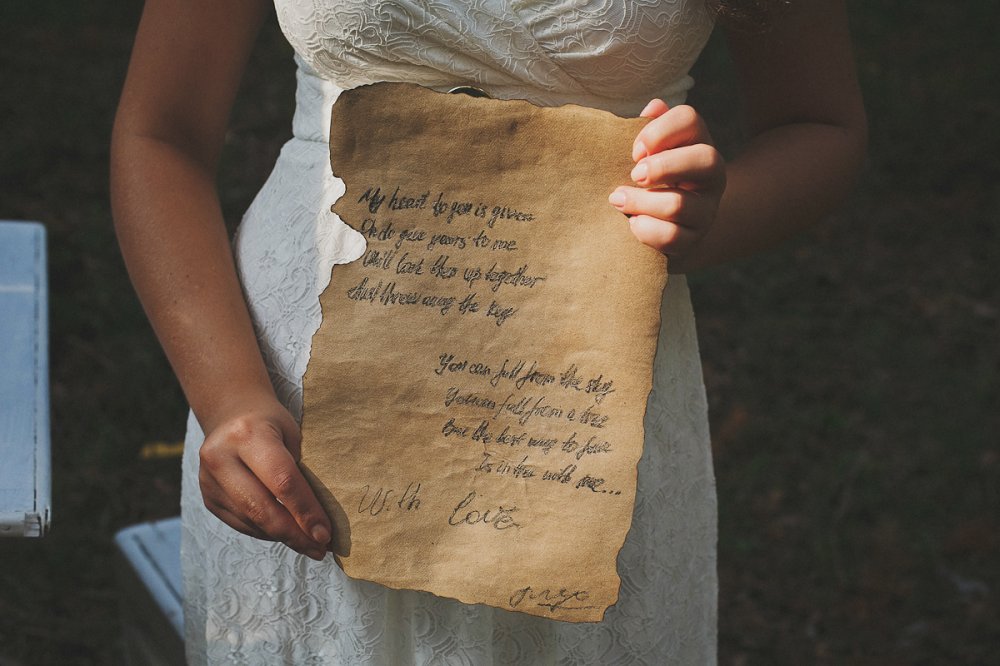 My heart to you is given
Oh do give yours to me
Will lock them up together
And throw away the key
You can fall from the sky
You can fall from a tree
But the best way to fall
Is in love with me...
With love